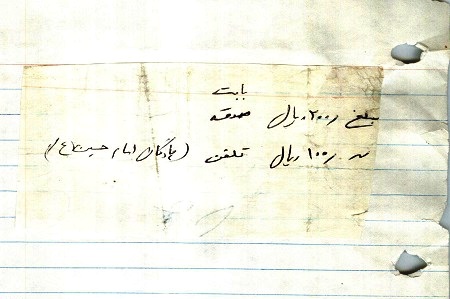 بابت
مبلغ ۲۰۰ ریال صدقه
۱۰۰ ریال تلفن (پادگان امام حسین (ع))